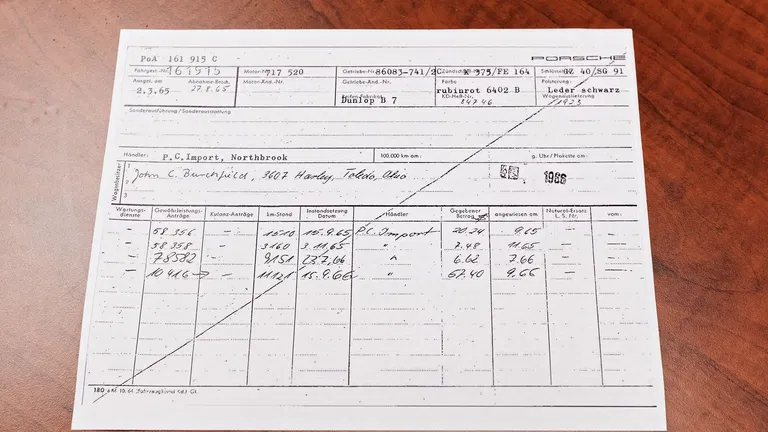 PoA 161 915 C
PORSCHE
Fahrgest.-Nr. 161915 Motor-Nr. 717 520 Getriebe-Nr. 86083-741/2C Zündschl. K 575/FE 164 Schlüssel OZ 40/SG 91
Ausgel. am Abnahme-Besch. Motor-Änd.-Nr. Getriebe-Änd.-Nr. Farbe Polsterung:
rubinrot 6402 B Leder schwarz
2.3.65 27.8.65 Reifen-Fabrikat KD-Heft-Nr. Wagenauslieferung
Dunlop B 7 84746 1923
Sonderausführung / Sonderausstattung
Händler: P.C.Import, Northbrook 100.000 km am: g. Uhr / Plakette am:
Wagenbesitzer
1 John C. Burchfield, 3607 Harley, Toledo, Ohio 1966
2
3
Wartungs-dienste Gewährleistungs-Anträge Kulanz-Anträge km-Stand Instandsetzung Datum Händler Gegebener Betrag angewiesen am Natural-Ersatz L. S. Nr. vom:
- 58 356 - 1510 15.9.65 P.C. Import 20.24 9.65 - -
- 58 358 - 3160 3.11.65 " 7.48 11.65 - -
- 78582 - 9151 23.7.66 " 6.62 7.66 - -
- 10416 - 11121 15.9.66 " 67.40 9.66 - -
180